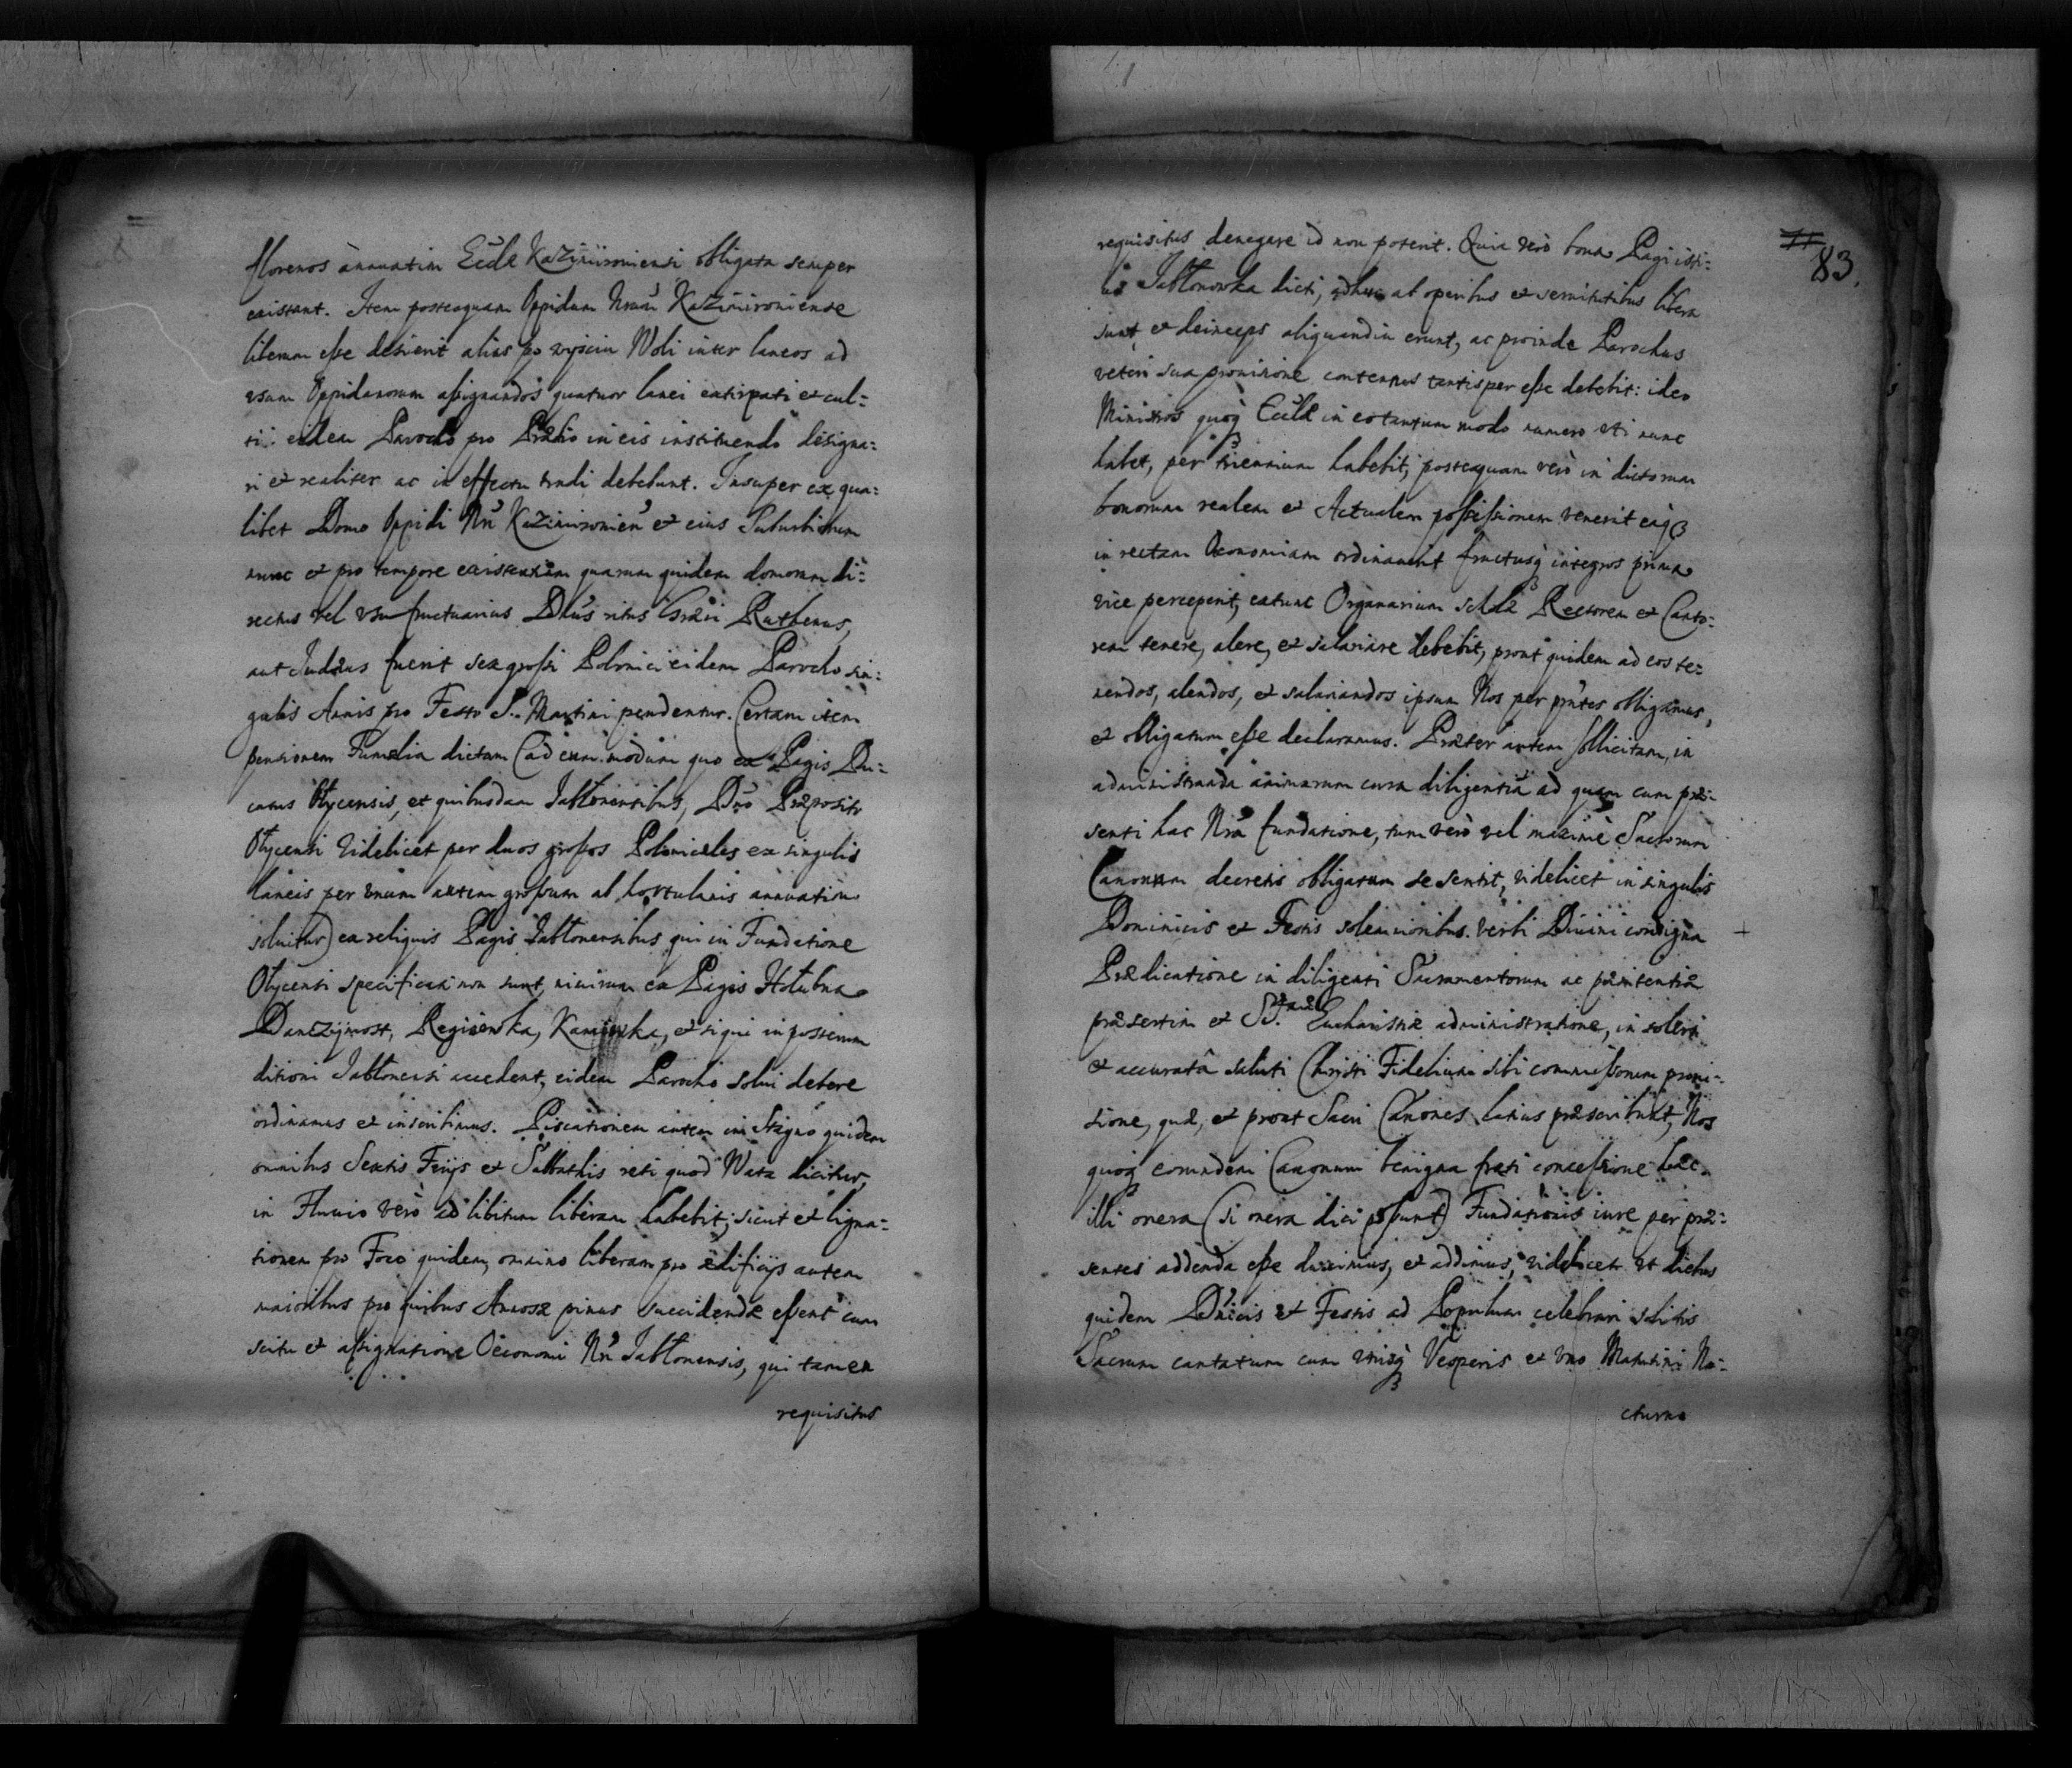 florenos ànnuatim Eccłæ Kazimironiensi obligata semper
existant. Item posteaquam Oppidum Nrum Kazimironiense
liberum esse desierit alias po wyściu Woli inter laneos ad
vsum Oppidanorum assignandos quatuor lanei extirpati et cul=
ti: eidem Parocho pro Prædio in eis instituendo designa=
ri et realiter ac in effectu tradi debebunt. Insuper ex qua=
libet Domo Oppidi Nri Kazimironien et eius Suburbiorum
nunc et pro tempore existentium quarum quidem domorum di=
rectus vel vsufructuarius Dnus ritus Græci Ruthenus,
aut Iudæus fuerit sex grossi Polonici eidem Parocho sin=
gulis Annis pro Festo S. Martini pendentur. Certam item
pensionem Fumalia dictam (ad eum modum quo ex Pagis Du=
catus Ołycensis, et quibusdam Jabłonensibus, Dno Præposito
Ołycensi videlicet per duos grossos Polonicales ex singulis
laneis per vnum autem grossum ab hortulanis annuatim
soluitur) ex reliquis Pagis Jabłonensibus qui in Fundatione
Ołycensi specificati non sunt, nimirum ex Pagis Hołubna
Danczymost, Kamionka, et si qui in posterum
ditioni Jabłonensi accedent, eidem Parocho solui debere
ordinamus et inscribimus. Piscationem autem in Stagno quidem
omnibus Sextis Ferijs et Sabbathis reti quod Wata dicitur,
in Fluuio verò ad libitum liberam habebit; sicut et ligna=
tionem pro Foco quidem, omnino liberam pro ædificijs autem
maioribus pro quibus Annosæ pinus succidendæ essent cum
scitu et assignatione Oeconomi Nri Jabłonensis, qui tamen
requisitus
83.
requisitus denegare id non poterit. Quia verò bona Pagi isti=
us Jabłonowka dicti, adhuc ab operibus et seruitutibus libera
sunt, et deinceps aliquandiu erunt, ac proinde Parochus
veteri sua prouisione contentus tantisper esse debebit: ideo
Ministros quoq Eccłæ in eo tantum modo numero vti nunc
habet, per triennium habebit, posteaquam verò in dictorum
bonorum realem et Actualem possessionem venerit eaq
in rectam Oeconomiam ordinauerit fructusq integros prima
vice perceperit, extunc Organarium Scholæ Rectorem et Canto=
rem tenere, alere, et salariare debebit, prout quidem ad eos te=
nendos, alendos, et salariandos ipsum Nos per pntes obligamus,
et obligatum esse declaramus. Præter autem sollicitam, in
administranda animarum cura diligentiã ad quam cum præ=
senti hac Nra fundatione, tum verò vel maximè Sacrorum
Canonum decretis obligatum se sentit, videlicet in singulis
Dominicis et Festis solemnioribus verbi Diuini condigna
Prædicatione in diligenti Sacramentorum ac pænitentiæ
præsertim et SS. Eucharistiæ administratione, in solerti
et accuratâ saluti Christi Fidelium sibi commissorum proui=
sione, quæ, et prout Sacri Canones latius præscribunt, Nos
quoq eorundem Canonum benigna freti concessione hæc
illi onera (si onera dici possunt) Fundationis iure per præ=
sentes addenda esse duximus, et addimus, videlicet vt diebus
quidem Dnicis et Festis ad Populum celebrari solitis
Sacrum cantatum cum vtrisq Vesperis et vno Matutini No=
cturno